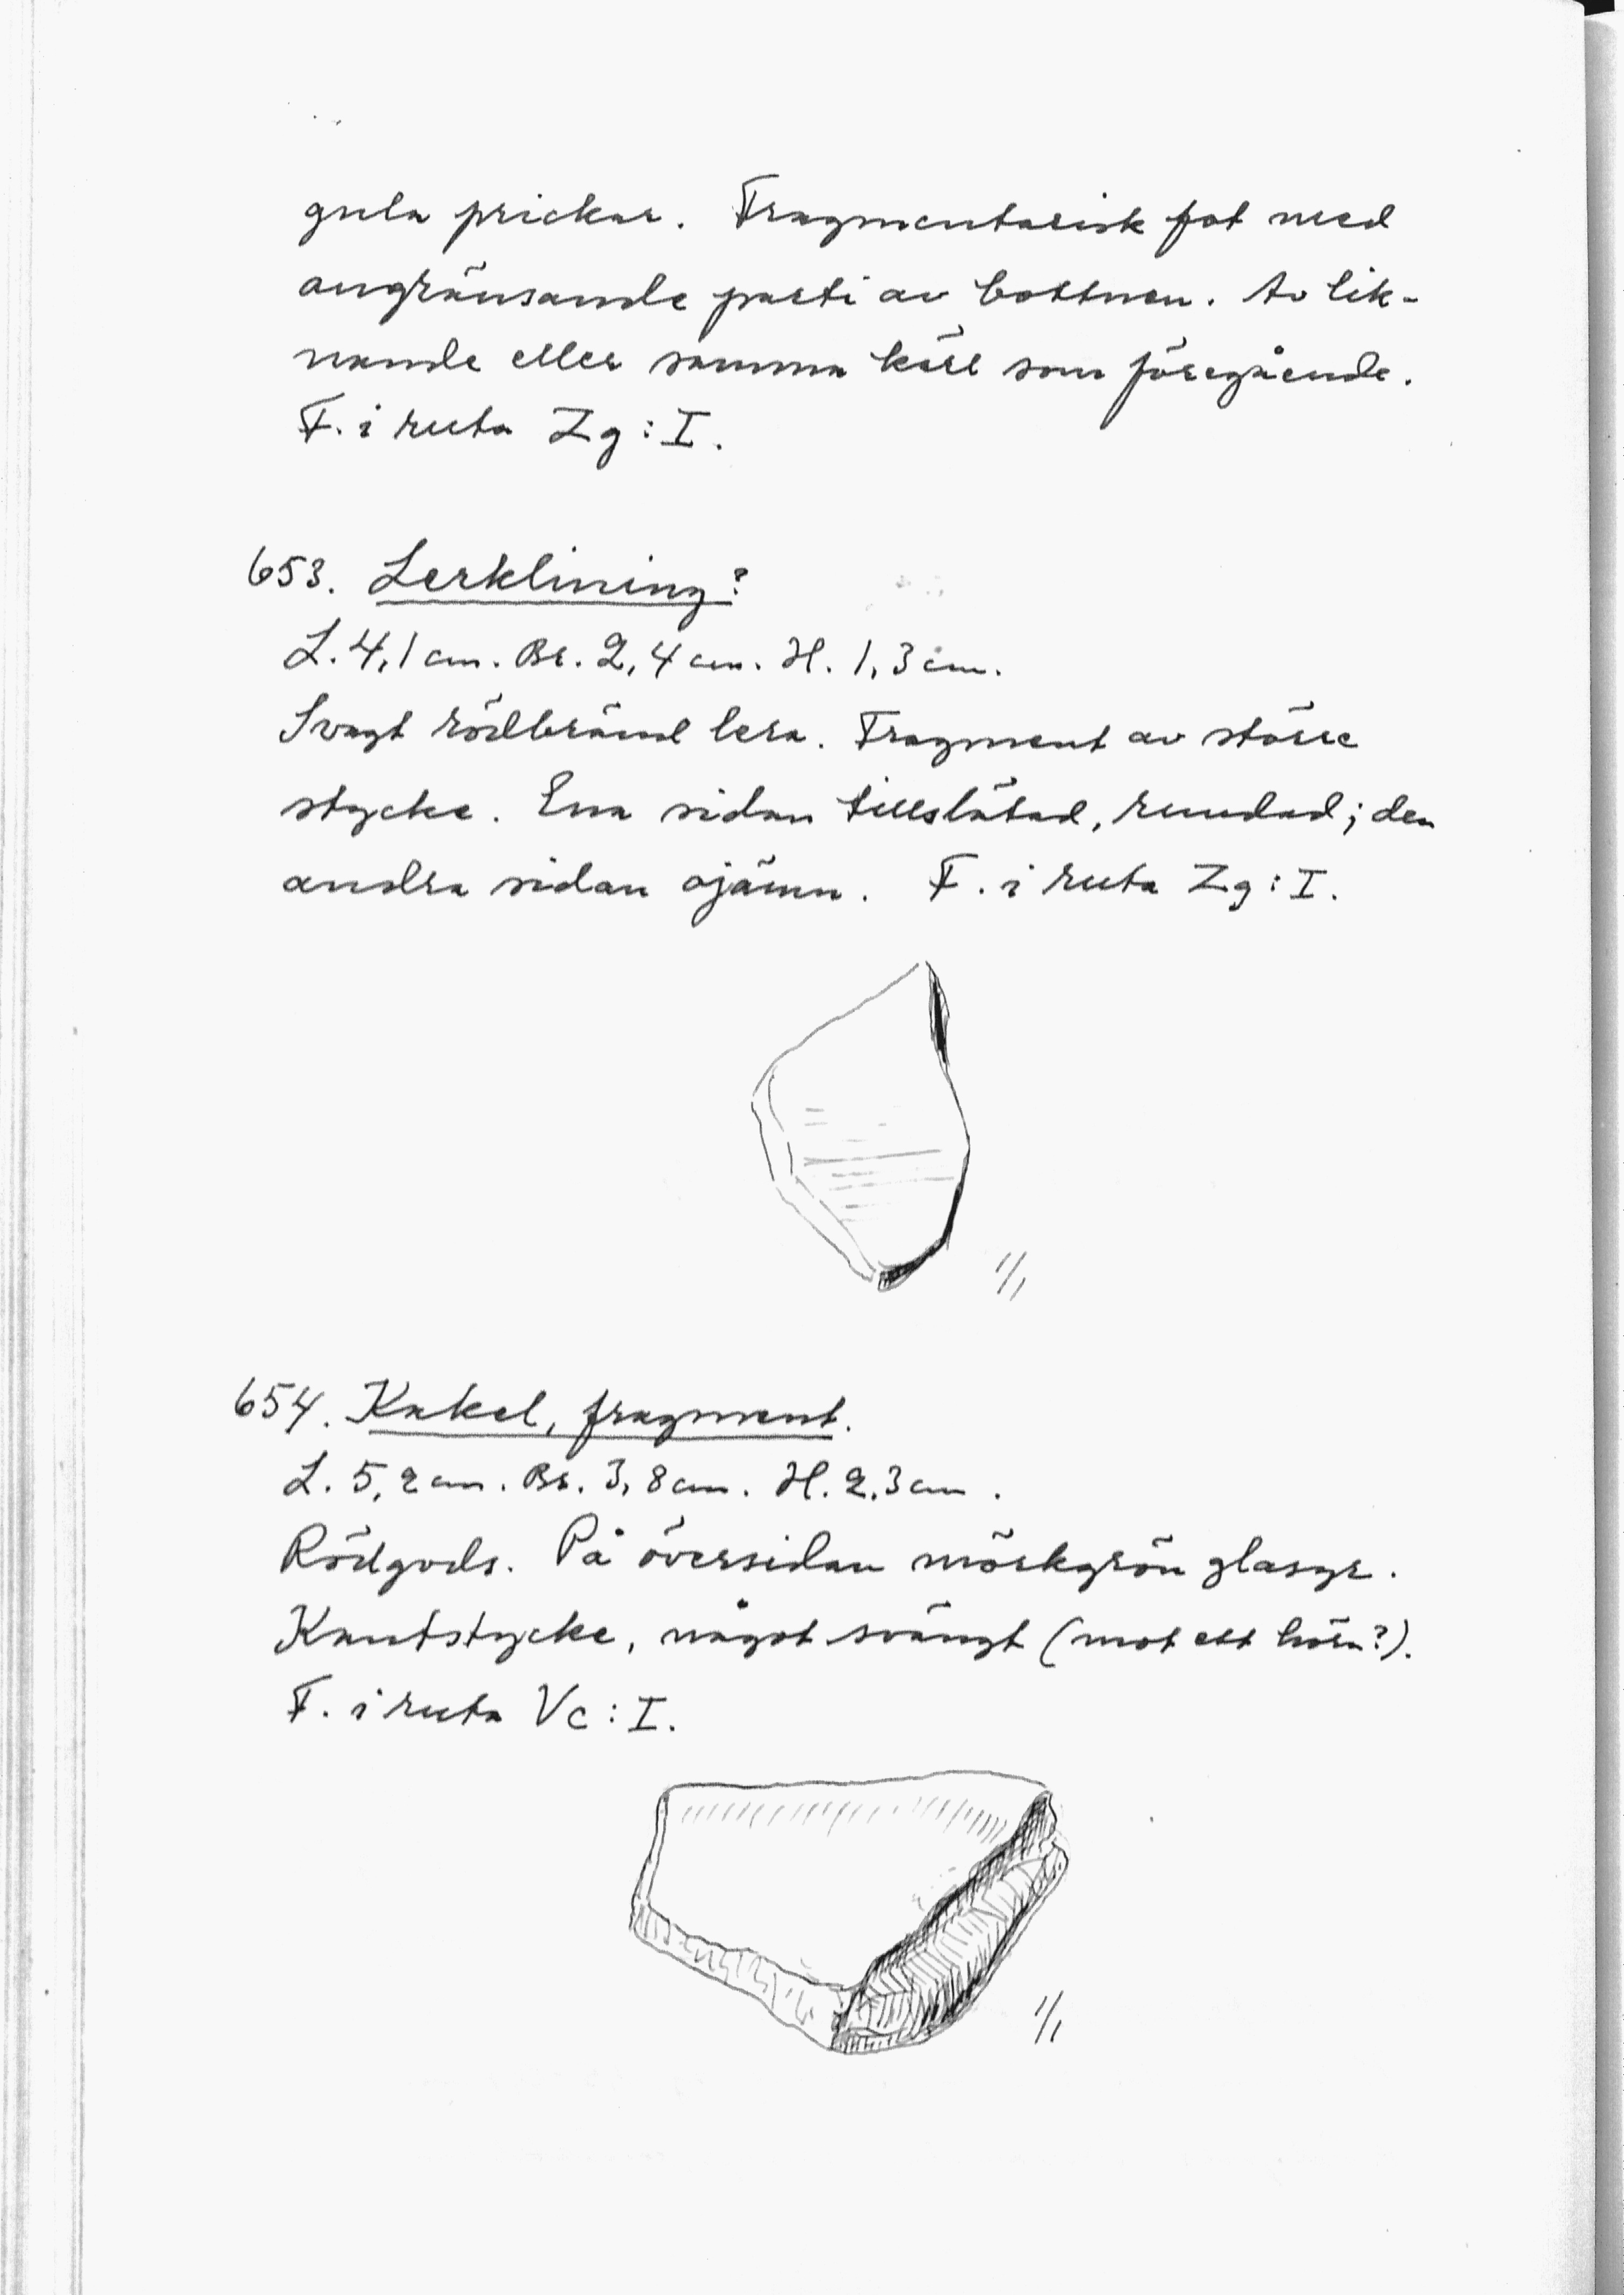 gula prickar. Fragmentarisk fot med
angränsande parti av bottnen. Av lik-
nande eller samma kärl som föregående.
F. i ruta Zg: I.
653. Lerklining?
L. 4,1 cm. Br. 2,4 cm. H. 1,3 cm.
Svagt rödbränd lera. Fragment av större
stycke. Ena sidan tillslätad, rundad; den
andra sidan ojämn. F. i ruta Zg: I.
1/1
654. Kakel, fragment.
L. 5,2 cm. Br. 3,8 cm. H. 2,3 cm.
Rödgods. På översidan mörkgrön glasyr.
Kantstycke, något svängt (mot ett hörn?).
F. i ruta Vc: I.
1/1